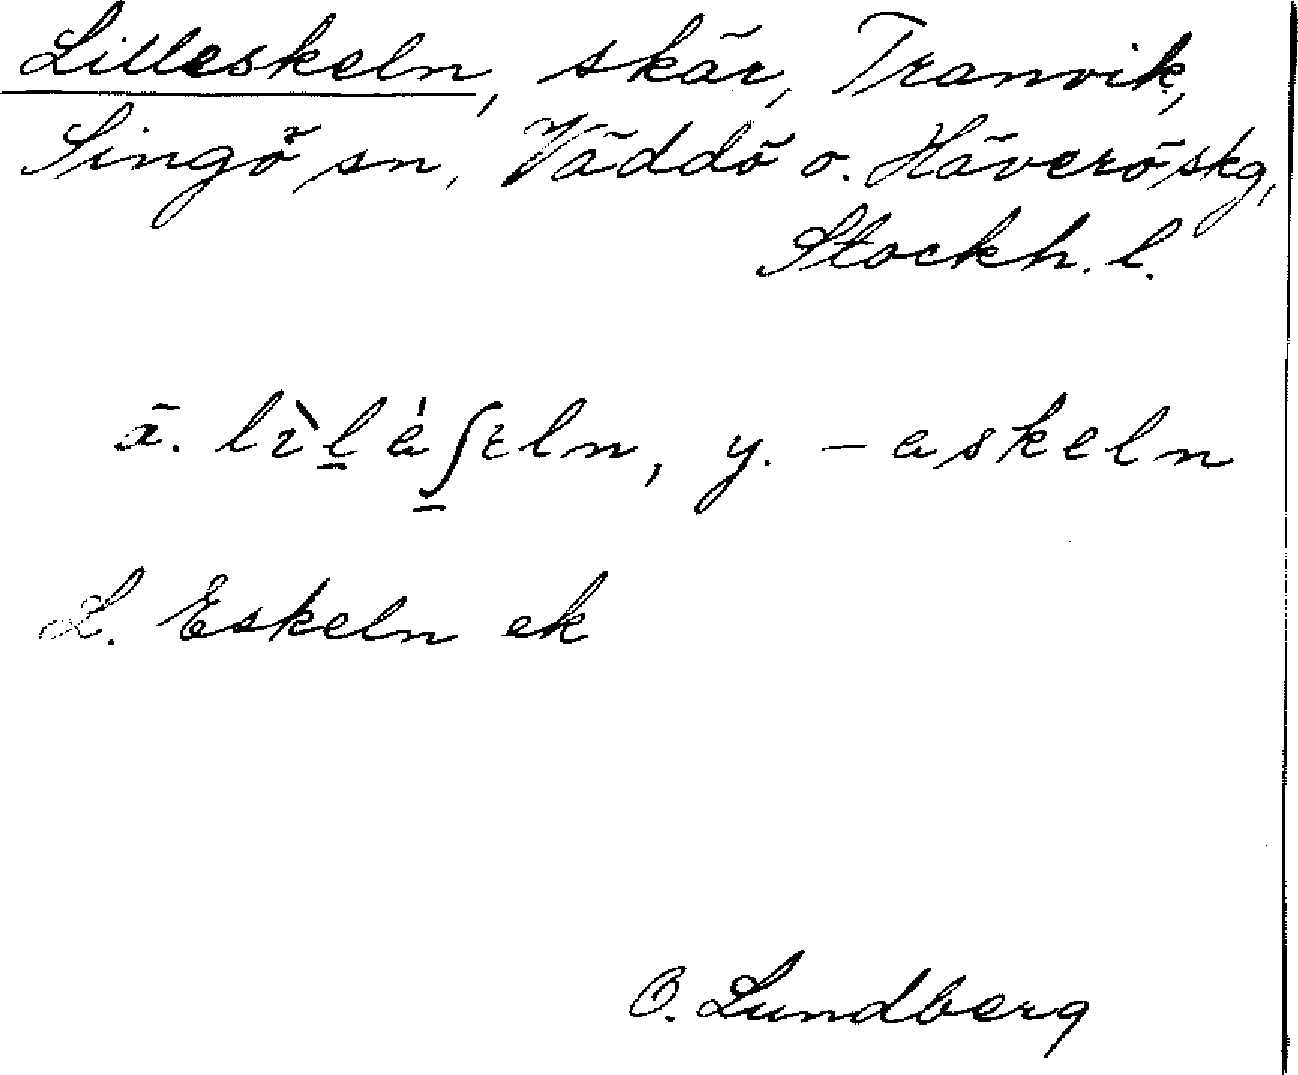 Lilleskeln, skär, Tranvik,
Singö sn, Väddö o. Häverö skg,
Stockh. l.
ä. lìl̲éʃ̲ɛln, y. -eskeln
L. Eskeln ek
O. Lundberg